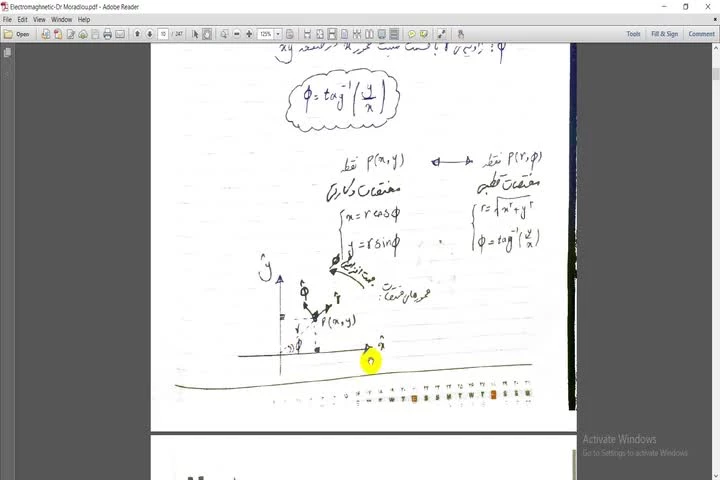 Electromaghnetic-Dr Moradlou.pdf - Adobe Reader
File Edit View Window Help
Open 10 / 247 125% Tools Fill & Sign Comment
φ = tag⁻¹(y/x)
نقطه P(x,y) نقطه P(r,φ)
مختصات دکارتی مختصات قطبی
x = r cosφ r = √x²+y²
y = r sinφ φ = tag⁻¹(y/x)
ŷ
φ̂ r̂
P(x,y)
r
φ x̂
Activate Windows
Go to Settings to activate Windows.